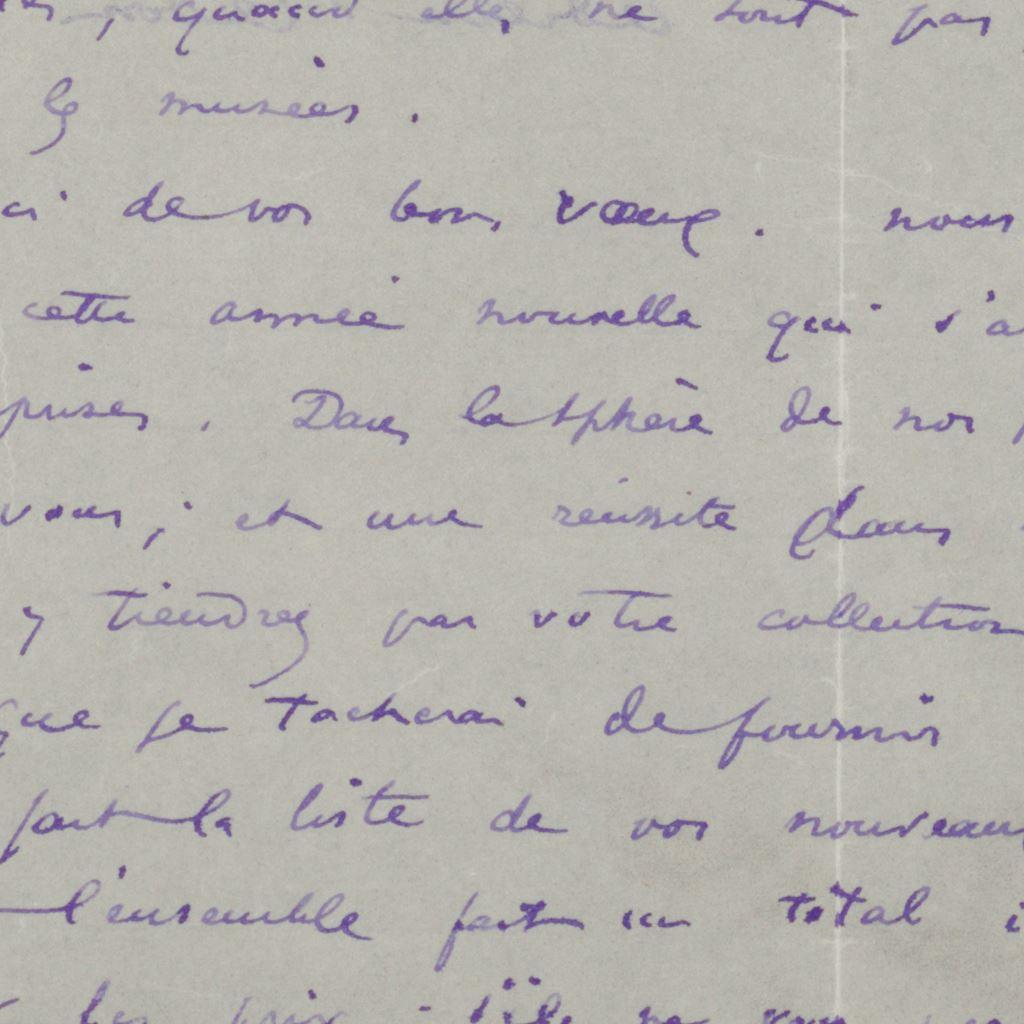 , quand elles ne sont pas
les musées.
ci de vos bons vœux. nous
cette année nouvelle qui s'a
prises. Dans la sphère de nos
vous; et une réussite dans
y tiendrez par votre collection
que je tacherai de fournir
fait la liste de vos nouveaux
l'ensemble fait un total
les prix. s'ils ne vous